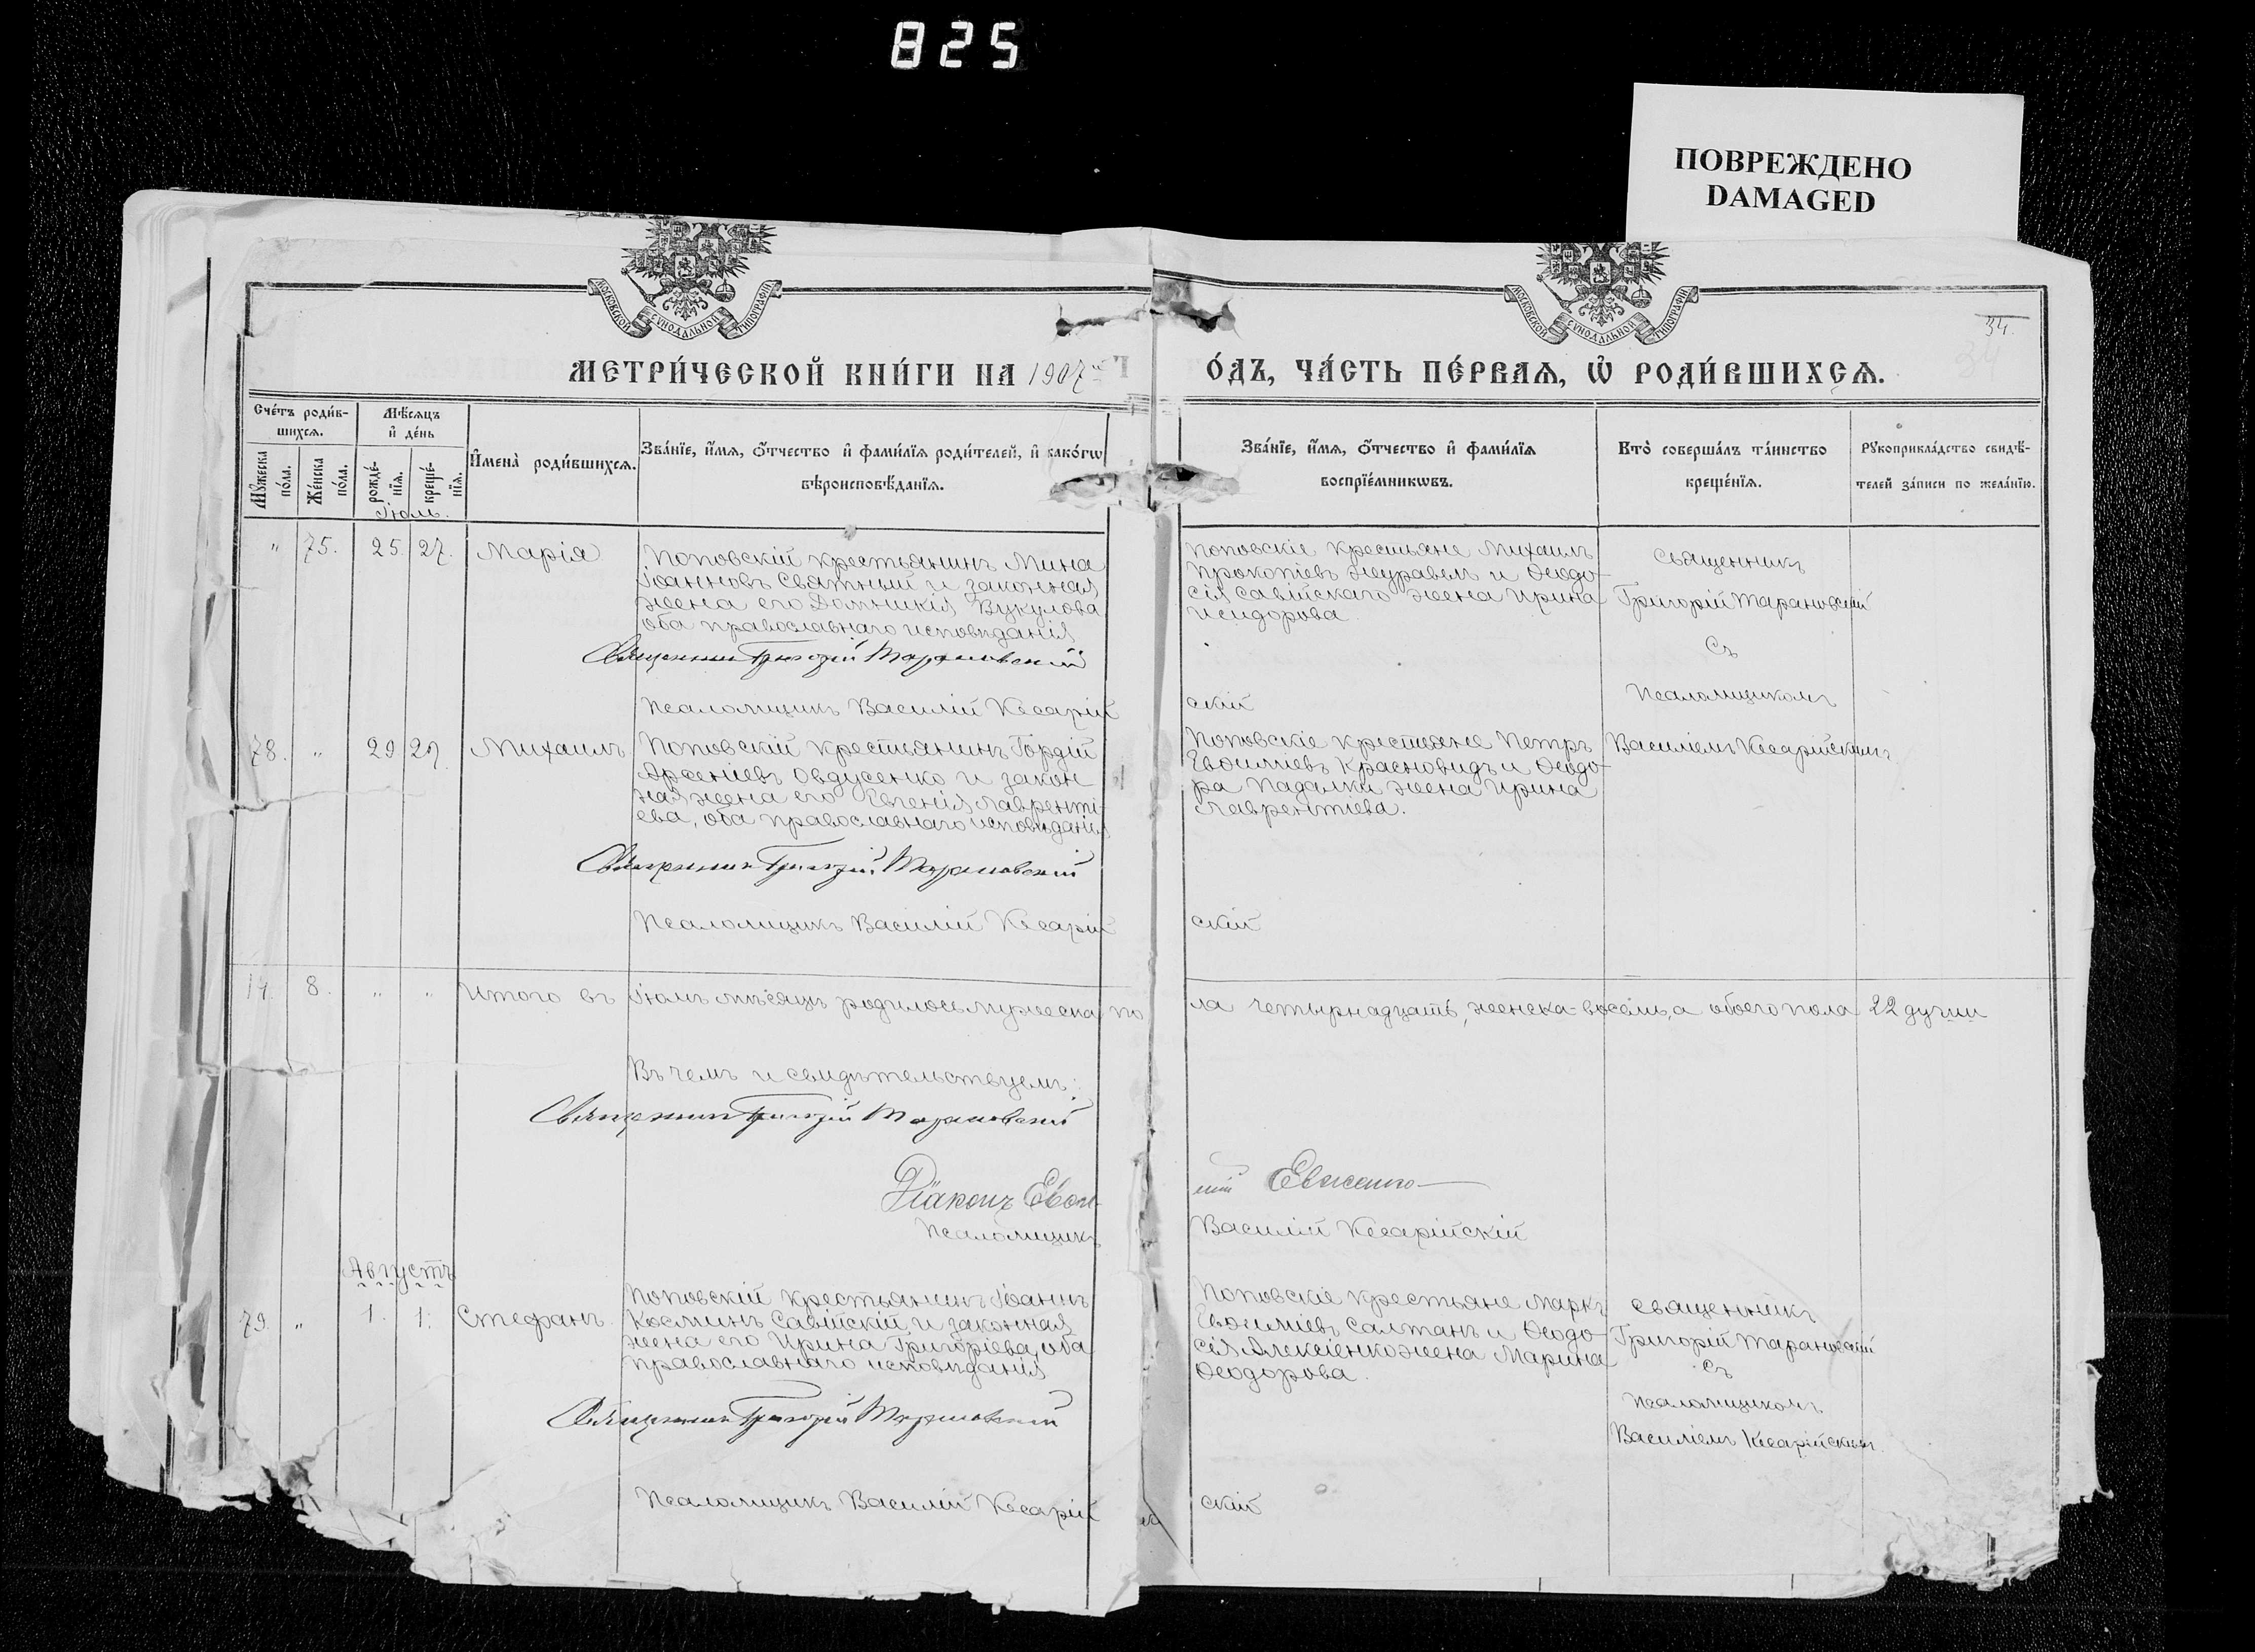 825
ПОВРЕЖДЕНО
DAMAGED
МОСКОВСКОЙ СѴНОДАЛЬНОЙ ТИПОГРАФІИ
МОСКОВСКОЙ СѴНОДАЛЬНОЙ ТИПОГРАФІИ
34.
МЕТРИ́ЧЕСКОЙ КНИ́ГИ НА 1907й Г
О́ДЪ, ЧА́СТЬ ПЕ́РВАѦ, Ѡ РОДИ́ВШИХСѦ.
Сче́тъ роди́в-
шихсѧ.
Мѣ́сѧцъ
и де́нь
Мꙋ́жеска по́ла.
Же́нска по́ла.
рожде́-нїѧ.
креще́-нїѧ.
Имена̀ роди́вшихсѧ.
Зва́нїе, и́мѧ, ѻ́тчество и фами́лїѧ роди́телей, и како́гѡ
вѣроисповѣ́данїѧ.
Зва́нїе, и́мѧ, ѻ́тчество и фами́лїѧ
воспрїе́мникѡвъ.
Кто̀ соверша́лъ та́инство
креще́нїѧ.
Рꙋкоприкла́дство свидѣ́-
телей за́писи по жела́нїю.
Іюль.
" 75. 25. 27. Марія
Поповскій крестьянинъ Мина
Іоанновъ Святный и законная
жена его Домникія Вукулова
оба православнаго исповѣданія
Священникъ Григорій Тарановскій
Псаломщикъ Василій Кесарій
Поповскіе крестьяне Михаилъ
Прокопіевъ Журавель и Ѳеодо-
сія Савійскаго жена Ирина
Исидорова.
скій
Священникъ
Григорій Тарановскій
Съ
Псаломщикомъ
Василіемъ Кесарійскимъ
78. " 29 29. Михаилъ
Поповскій крестьянинъ Гордій
Арсеніевъ Овдусенко и закон
ная жена его Евгенія Лавренті-
ева, оба православнаго исповѣданія
Священникъ Григорій Тарановскій
Псаломщикъ Василій Кесарій
Поповскіе крестьяне Петръ
Евѳиміевъ Красновидъ и Ѳеодо-
ра Падалки жена Ирина
Лаврентіева.
скій
14. 8. " " Итого въ Іюлѣ мѣсяцѣ родилось мужеска по
ла четырнадцать, женска-восемь, а обоего пола 22 души
Въ чемъ и свидѣтельствуемъ:
Священникъ Григорій Тарановскій
Діаконъ Евѳи-
мій
Псаломщикъ
Василій Кесарійскій
Августъ
79. " 1. 1. Стефанъ.
Поповскій крестьянинъ Іоаннъ
Косминъ Савійскій и законная
жена его Ирина Григоріева, оба
православнаго исповѣданія
Священникъ Григорій Тарановскій
Псаломщикъ Василій Кесарій
Поповскіе крестьяне Маркъ
Евѳиміевъ Салтанъ и Ѳеодо-
сія Алексіенко жена Марина
Ѳеодорова.
скій
Священникъ
Григорій Тарановскій
Съ
Псаломщикомъ
Василіемъ Кесарійскимъ